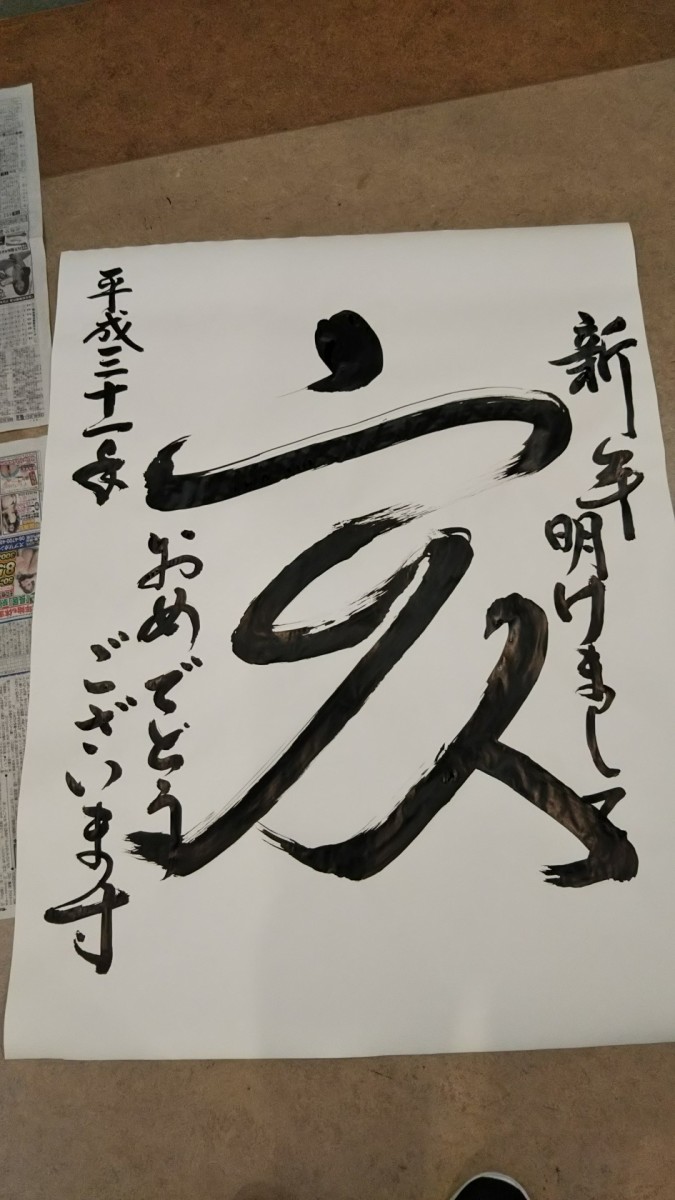 新年明けまして
亥
おめでとう
ございます
平成三十一年